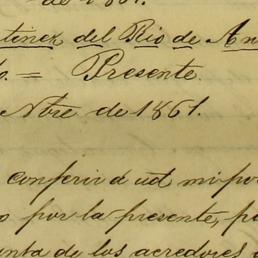 de 1861.
tinez del Rio de An
o. = Presente.
Nbre de 1861.
conferir á ud mi po
o por la presente, p
unta de los acredores